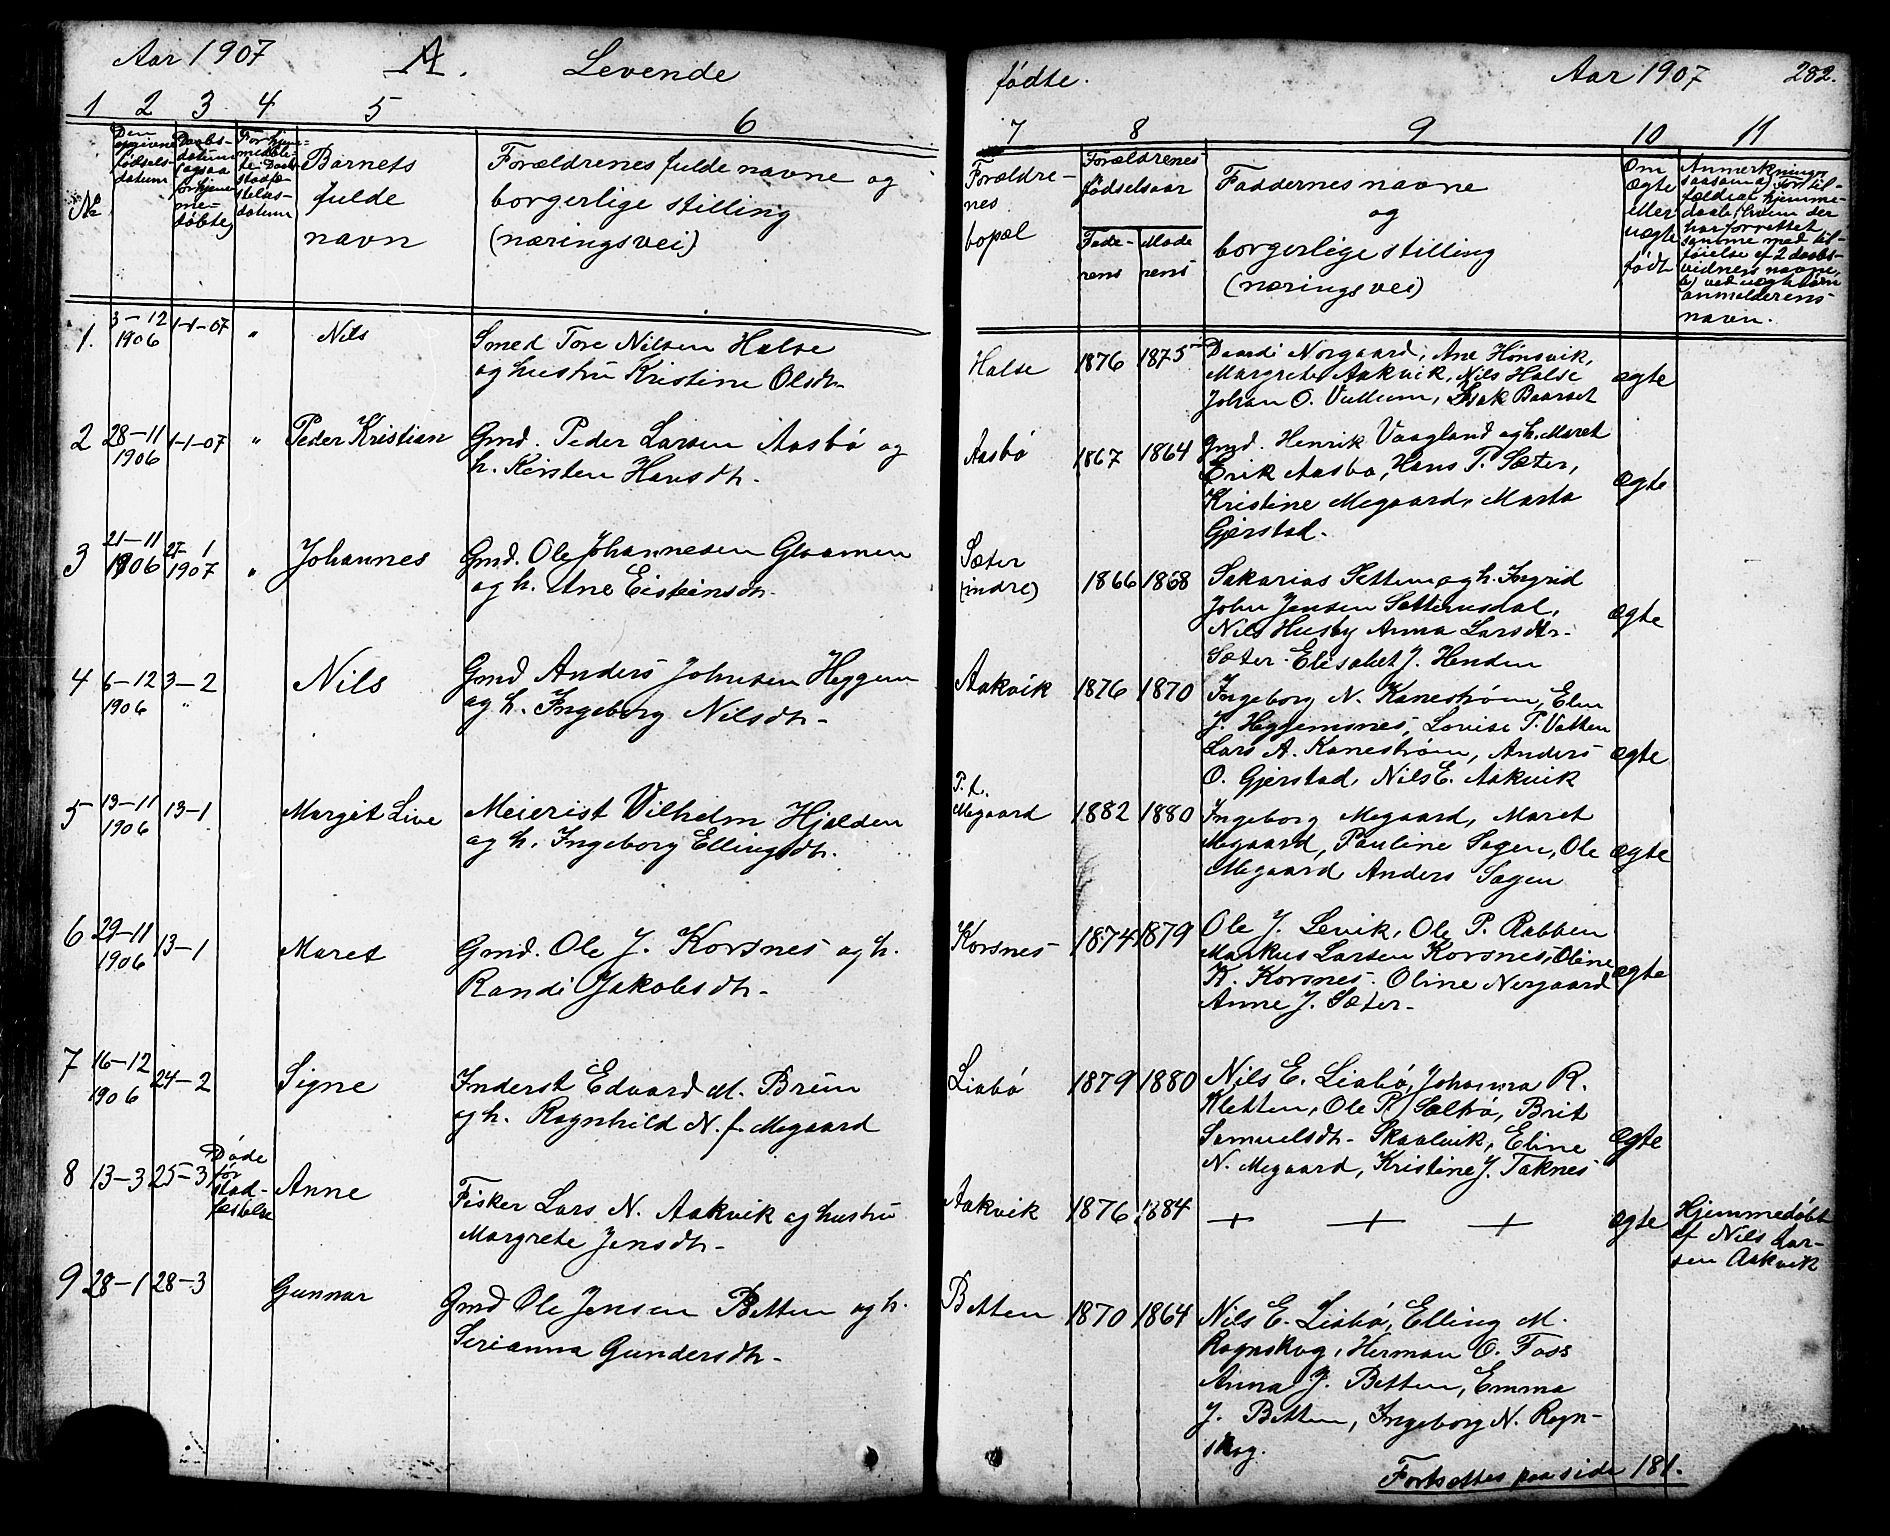 Aar 1907 A. Levende
1 2 3 4 5 6
№
Den
opgivne
fødsels-
datum
Daabs-
datum
(ogsaa
for hjem-
me-
døbte)
For hjem-
medøbte
Daabs
stadfæ-
stelses-
datum
Barnets
fulde
navn
Forældrenes fulde navne og
borgerlige stilling
(næringsvei)
1. 3–12 1906 1-1-07 " Nils
Smed Tore Nilsen Halse
og hustru Kristine Olsdtr.
2 28–11 1906 1-1-07 " Peder Kristian
Gmd. Peder Larsen Aasbø og
h. Kirsten Hansdtr.
3 21–11 1906 27–1 1907 " Johannes
Gmd. Ole Johannesen Glaamen
og h. Ane Eisteinsdtr.
4 6–12 1906 3–2 " Nils
Gmd Anders Johnsen Heggem
og h. Ingeborg Nilsdtr.
5 13–11 1906 13–1 Margit Live
Meierist Vilhelm Hjelden
og h. Ingeborg Ellingsdtr.
6 29–11 1906 13–1 Maret
Gmd. Ole J. Korsnes og h.
Randi Jakobsdtr.
7 16–12 1906 24–2 Signe
Inderst Edvard M. Bruun
og h. Ragnhild N. f. Megaard
8 13–3 25–3 Døde
før
stad-
festelse
Anne
Fisker Lars N. Aakvik og hustru
Margrete Jensdtr.
9 28–1 28–3 Gunnar
Gmd Ole Jensen Betten og h.
Serianna Gundersdtr.
fødte. Aar 1907 282.
7 8 9 10 11
Forældre-
nes
bopæl
Forældrenes
fødselsaar
Fade-
rens
Mode
rens
Faddernes navne
og
borgerlige stilling
(næringsvei)
Om
ægte
eller
uægte
født
Anmerkninger
saasom a) For til-
fælde af hjemme-
daab, hvem der
har forrettet
samme med til-
føielse af 2 daabs-
vidners navne,
b) ved uægte børn
anmelderens
navn.
Halse 1876 1875
Daardi Norgaard, Ane Hønsvik,
Margrete Aakvik, Nils Halse
Johan O. Vullum, Isak Baarset
ægte
Aasbø 1867 1864
Gmd. Henrik Vaagland og h. Maret
Erik Aasbø, Hans P. Sæter,
Kristine Megaard, Marta
Gjerstad.
ægte
Sæter
(indre)
1866 1868
Sakarias Settem og h. Ingrid
John Jensen Settemsdal,
Nils Husby Anna Larsdtr.
Sæter. Elisabet J. Henden
ægte
Aakvik 1876 1870
Ingeborg N. Kanestrøm, Elen
J. Heggemsnes, Lovise P. Vatten
Lars A. Kanestrøm, Anders
O. Gjerstad, Nils E. Aakvik
ægte
P.t.
Megaard
1882 1880
Ingeborg Megaard, Maret
Megaard, Pauline Sagen, Ole
Megaard Anders Sagen
ægte
Korsnes 1874 1879
Ole J. Levik, Ole P. Rabben
Markus Larsen Korsnes, Oline
K. Korsnes. Oline Nergaard
Anne J. Sæter.
ægte
Liabø 1879 1880
Nils E. Liabø, Johanna R.
Kletten, Ole P. Sæltrø, Brit
Samuelsdtr. Skaalvik, Eline
N. Megaard, Kristine J. Taknes
ægte
Aakvik 1876 1884
+ + +
ægte
Hjemmedøbt
af Nils Lar-
sen Aakvik
Betten 1870 1864
Nils E. Liabø, Elling M.
Rognskog, Herman O. Foss
Anna J. Betten, Emma
J. Betten, Ingeborg N. Rogn-
skog.
Fortsættes paa side 181.